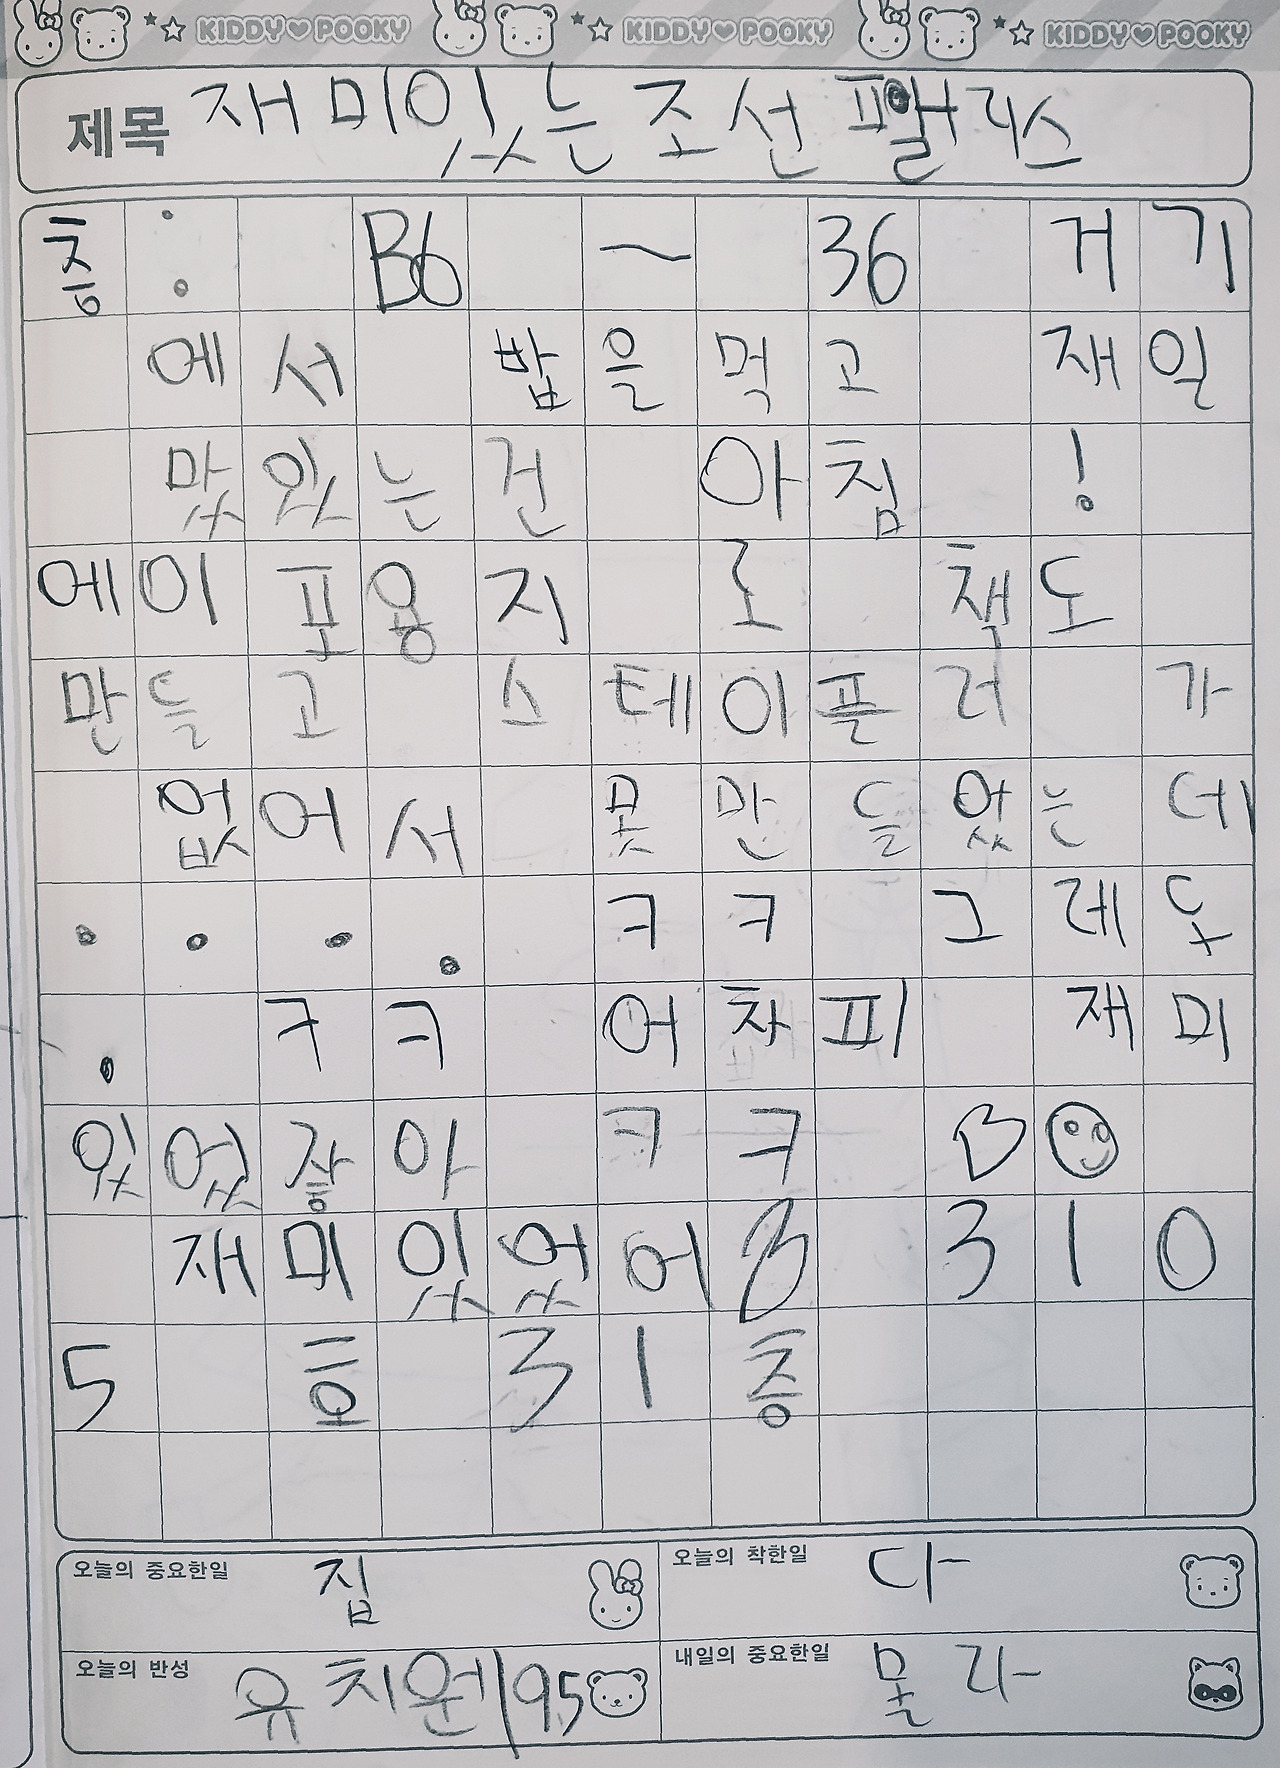 KIDDY♥POOKY KIDDY♥POOKY KIDDY♥POOKY
제목 재미있는 조선 팰리스
층 : B6 ~ 36 거기
에서 밥을 먹고 재일
맜있는건 아침 !
에이포용지 로 책도
만들고 스테이플러 가
없어서 못만들었는데
.... ㅋㅋ 그레도
. ㅋㅋ 어차피 재미
있었잖아 ㅋㅋ B☺
재미있었어B 310
5 호 31층
오늘의 중요한일 집
오늘의 착한일 다
오늘의 반성 유치원 195
내일의 중요한일 몰라